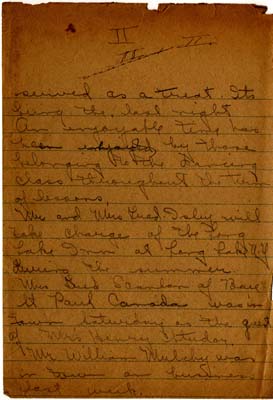 II
II
served as a treat. Its
being the last night
An enjoyable time has
been enjoyed by those
belonging to the Dancing
class throughout the term
of lessons.
Mr and Mrs Fred Isley will
take charge of the Long
Lake Inn at Long Lake N.Y
during the summer
Mrs Geo Scanlon of Baie
St Paul Canada was in
town Saturday as the guest
of Mrs Henry
Mr. William Mulchy was
in town on business
last week.